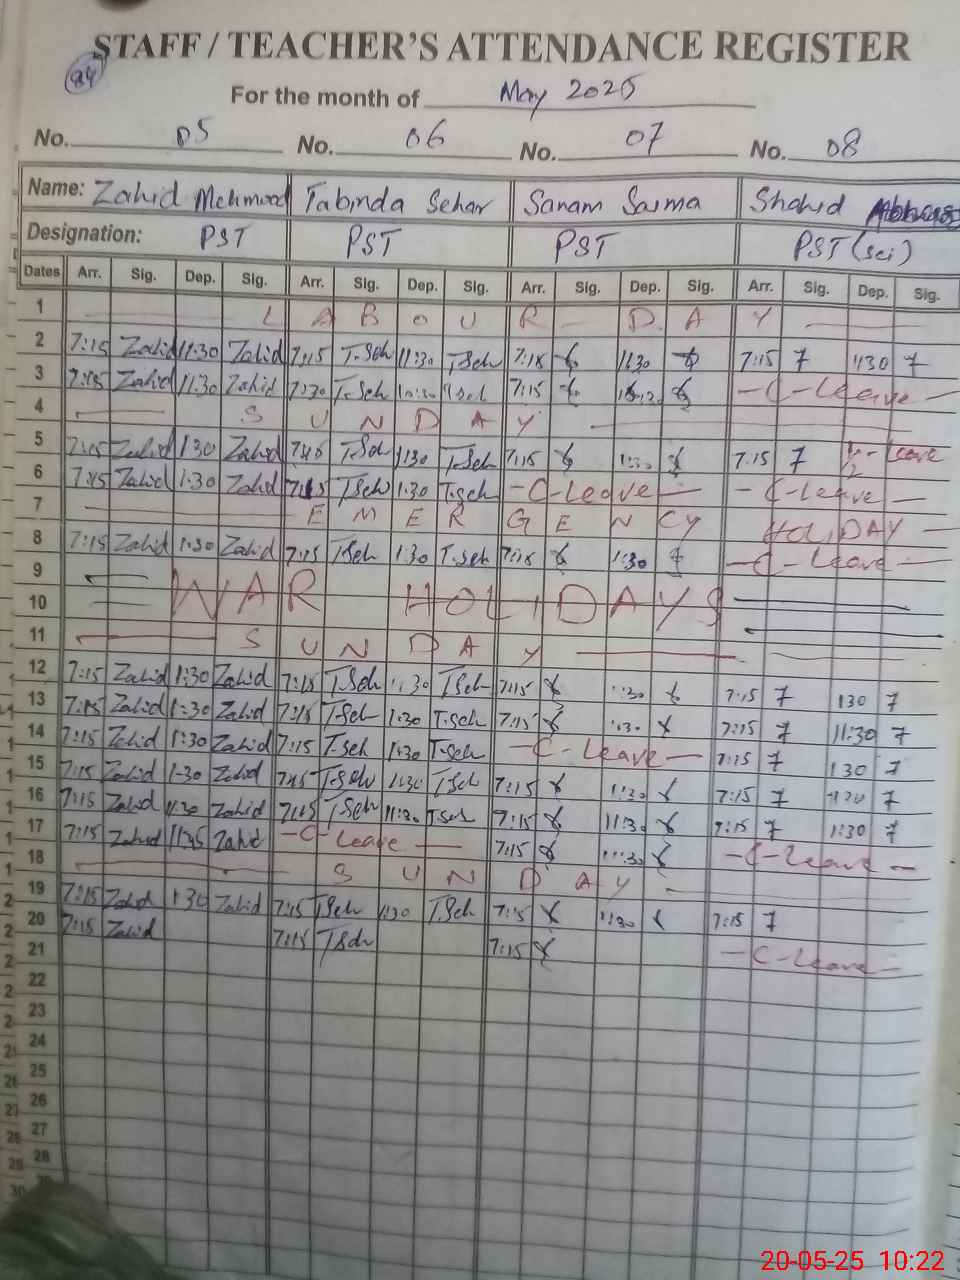 STAFF / TEACHER'S ATTENDANCE REGISTER
84
For the month of May 2025
No. 05 No. 06 No. 07 No. 08
Name: Zahid Mehmood Tabinda Sehar Sanam Saima Shahid Abbas
Designation: PST PST PST PST (sci)
Dates Arr. Sig. Dep. Sig. Arr. Sig. Dep. Sig. Arr. Sig. Dep. Sig. Arr. Sig. Dep. Sig.
1 LABOUR DAY
2 7:15 Zahid 11:30 Zahid 7:15 T.Seh 11:30 T.Seh 7:15 11:30 7:15 1130
3 7:15 Zahid 11:30 Zahid 7:30 T.Seh T.Seh 7:15 -C-Leave-
4 SUNDAY
5 7:15 Zahid 1:30 Zahid 7:15 T.Seh 1:30 T.Seh 7:15 1:30 7:15 1/2-Leave
6 7:15 Zahid 1:30 Zahid 7:15 T.Seh 1:30 T.seh -C-Leave- -C-leave-
7 EMERGENCY HOLIDAY
8 7:15 Zahid 1:30 Zahid 7:15 T.Seh 1:30 T.seh 7:15 1:30 -C-Leave-
9
10 WAR HOLIDAYS
11 SUNDAY
12 7:15 Zahid 1:30 Zahid 7:15 T.Seh 1:30 T.Seh 7:15 1:30 7:15 130
13 7:15 Zahid 1:30 Zahid 7:15 T.Seh 1:30 T.seh 7:15 1:30 7:15 11:30
14 7:15 Zahid 1:30 Zahid 7:15 T.seh 1:30 T.seh -C-Leave- 7:15 130
15 7:15 Zahid 1-30 Zahid 7:15 T.seh 1:30 T.Seh 7:15 1:30 7:15
16 7:15 Zahid 11:30 Zahid 7:15 T.Seh 11:30 T.seh 7:15 11:30 7:15 1:30
17 7:15 Zahid 11:45 Zahid -C-Leave- 7:15 11:30 -C-Leave-
18 SUNDAY
19 7:15 Zahid 1:30 Zahid 7:15 T.Seh 1:30 T.Seh 7:15 1:30 7:15
20 7:15 Zahid 7:15 T.Seh 7:15 -C-Leave-
21
22
23
24
25
26
27
28
20-05-25 10:22